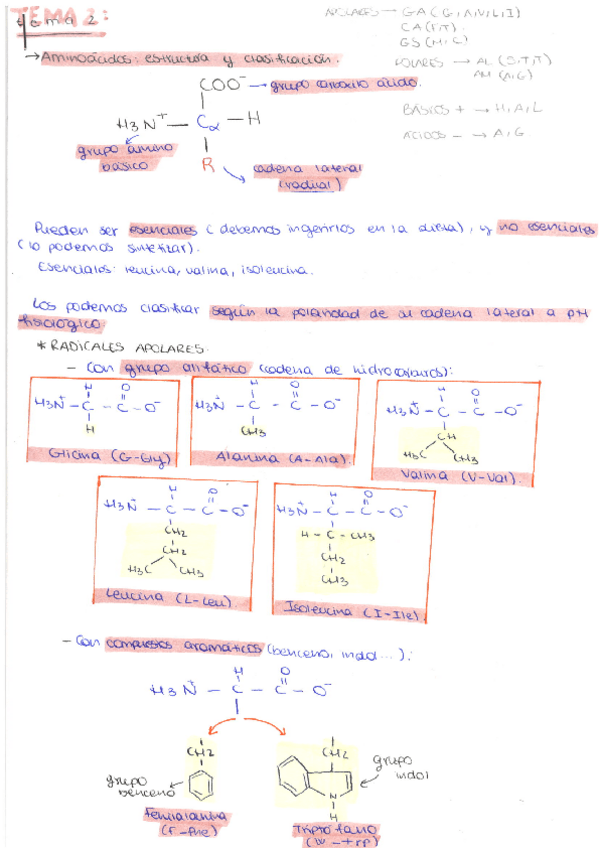 TEMA 2:
tema 2:
APOLARES → GA (G, A, V, L, I)
CA (F, T).
GS (M, C)
POLARES → AL (S, T, T)
AM (A, G)
BÁSICOS + → H, A, L
ÁCIDOS - → A, G
→ Aminoácidos: estructura y clasificación.
COO⁻ → grupo carboxilo ácido.
H3N⁺ — Cα — H
grupo amino
básico
R
cadena lateral
(radical)
Pueden ser esenciales (debemos ingerirlos en la dieta), y no esenciales
(lo podemos sintetizar).
Esenciales: leucina, valina, isoleucina.
Los podemos clasificar según la polaridad de su cadena lateral a pH
fisiológico:
* RADICALES APOLARES:
- Con grupo alifático (cadena de hidrocarburos):
H O
H3N⁺ - C - C - O⁻
H
Glicina (G-Gly)
H O
H3N⁺ - C - C - O⁻
CH3
Alanina (A-Ala)
H O
H3N⁺ - C - C - O⁻
CH
H3C CH3
Valina (V-Val)
H O
H3N⁺ - C - C - O⁻
CH2
CH2
H3C CH3
Leucina (L-Leu)
H O
H3N⁺ - C - C - O⁻
H - C - CH3
CH2
CH3
Isoleucina (I-Ile)
- Con compuestos aromáticos (benceno, indol...):
H O
H3N⁺ - C - C - O⁻
CH2
grupo
benceno
Fenilalanina
(F-Phe)
CH2
grupo
indol
N
H
Triptófano
(W-Trp)